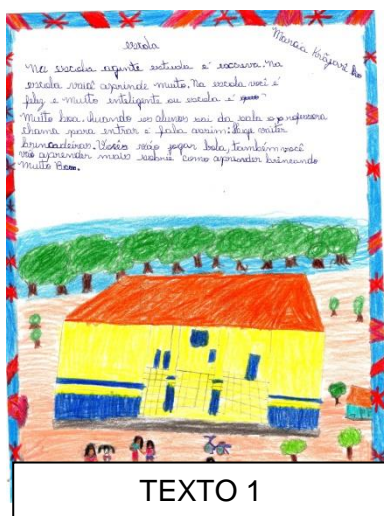 escola
Marcia Krãjarê
Na escola agente estuda e escreva. na
escola você aprende muito. Na escola você é
feliz e muito inteligente eu escola é
muito boa. Quando os alunos sai da sala a professora
chama para entrar e fala assim: Hoje vai ter
brincadeiras. Vocês vão jogar bola, também você
vão aprender mais sobre como aprender brincando
muito Bom.
TEXTO 1